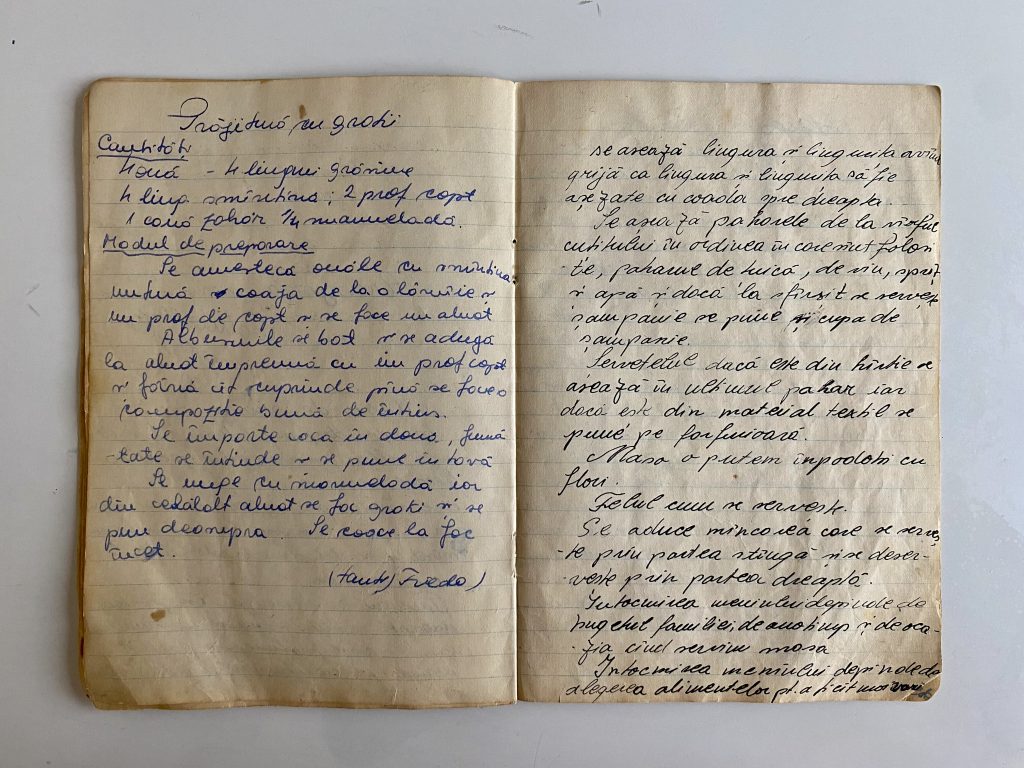 Prăjitură cu gratii
Cantităţi
4 ouă - 4 linguri grăsime
4 ling. smîntînă; 2 praf copt
1 cană zahăr 1/4 marmeladă.
Modul de preparare
Se amestecă ouăle cu smîntîna
untură coaja de la o lămîie şi
un praf de copt şi se face un aluat
Albuşurile se bat şi se adugă
la aluat împreună cu un praf copt
şi făină cît cuprinde pînă se face o
compoziţie bună de întins.
Se împarte coca în doua, jumă
-tate se întinde şi se pune în tavă
Se unge cu marmeladă iar
din celălalt aluat se fac gratii şi se
pun deasupra. Se coace la foc
încet.
(tanti) Freda)
se aşează lingura şi linguriţa avînd
grijă ca lingura şi linguriţa să fie
aşezate cu coada spre dreapta.
Se aşează paharele de la vîrful
cuţitului în ordinea în care sunt folosi
te, paharul de ţuică, de vin, şpriţ
şi apă şi dacă la sfîrşit se serveşte
şampanie se pune şi cupa de
şampanie.
Şerveţelul dacă este din hîrtie se
aşează în ultimul pahar iar
dacă este din material textil se
pune pe farfurioară.
Masa o putem înpodobi cu
flori.
Felul cum se serveşte.
Se aduce mîncarea care se serveş
-te prin partea stîngă şi se deser-
veşte prin partea dreaptă.
Intocmirea meniului depinde de
bugetul familiei, de anotimp şi de oca-
-zia cînd servim masa
Intocmirea meniului depinde de
alegerea alimentelor pt. a fi cît mai